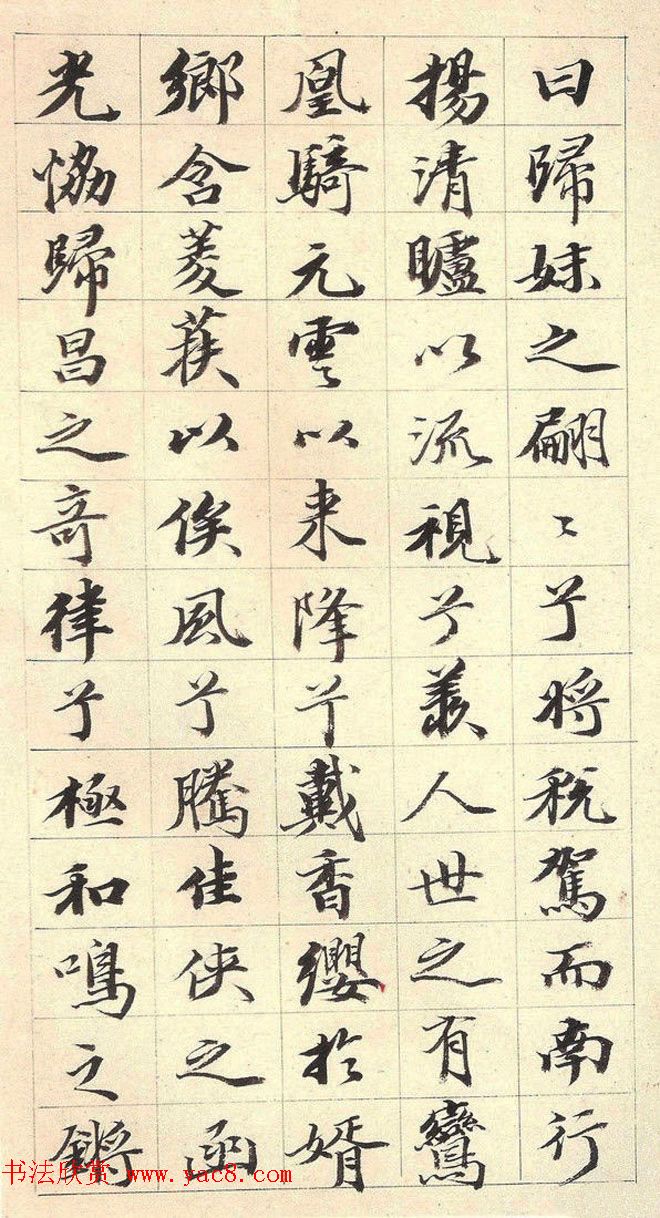 曰歸妹之翩〻兮將稅駕而南行
揚清矑以流視兮羨人世之有鸞
凰騎元雲以来降兮戴香纓於婿
鄉含菱蕤以俟風兮騰佳俠之函
光恊歸昌之奇律兮極和鳴之鏘
书法欣赏 www.yac8.com